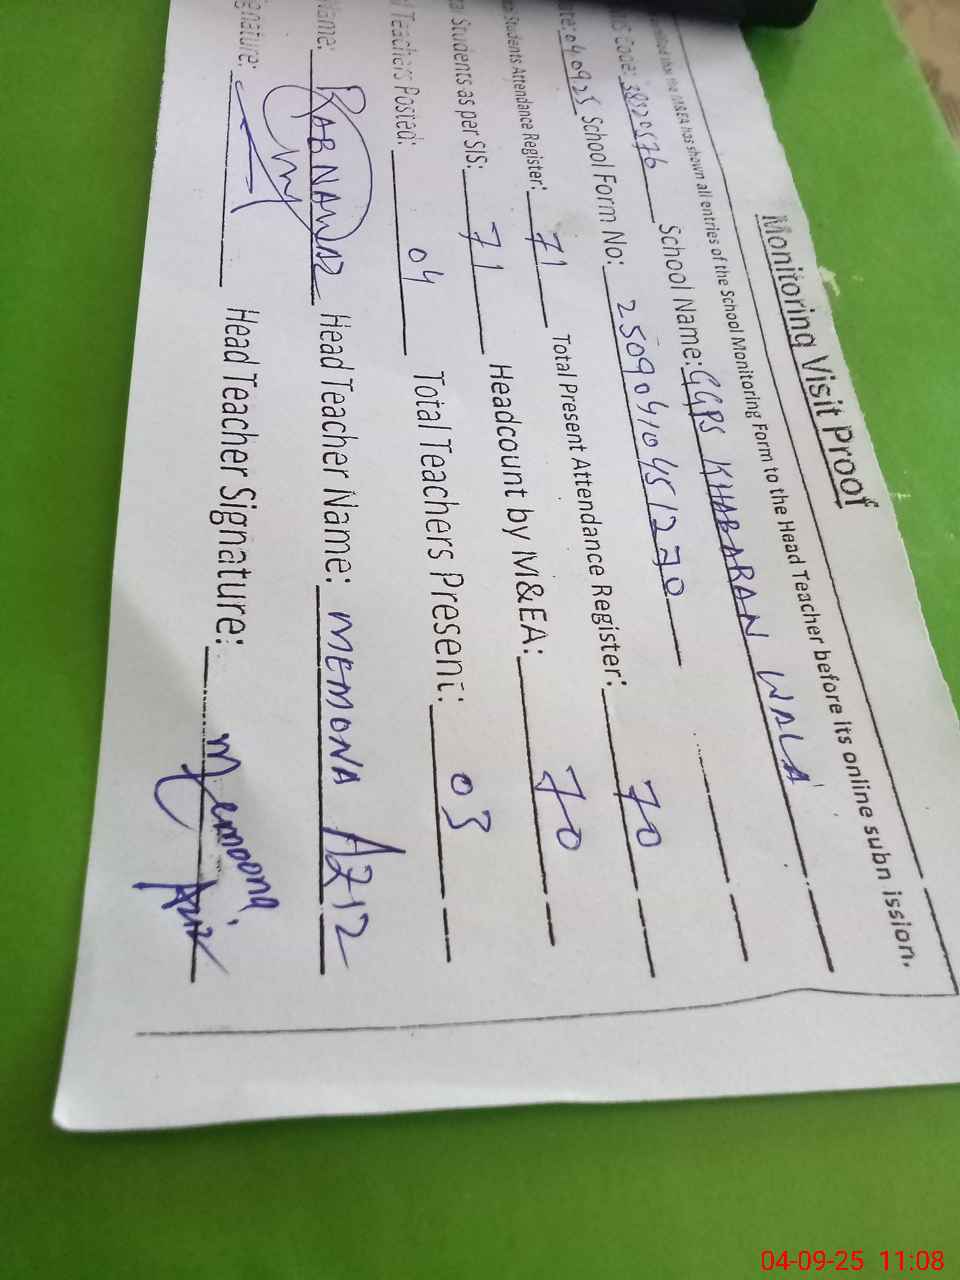 Monitoring Visit Proof
that the M&EA has shown all entries of the School Monitoring Form to the Head Teacher before its online subn ission.
Code: 38320576 School Name: GGPS KHABARAN WALA
te: 040925 School Form No: 25090410451270
Students Attendance Register: 71 Total Present Attendance Register: 70
Students as per SIS: 71 Headcount by M&EA: 70
Teachers Posted: 04 Total Teachers Present: 03
Name: RAB NAWAZ Head Teacher Name: MEMONA AZIZ
gnature: Head Teacher Signature: Memoona Aziz
04-09-25 11:08